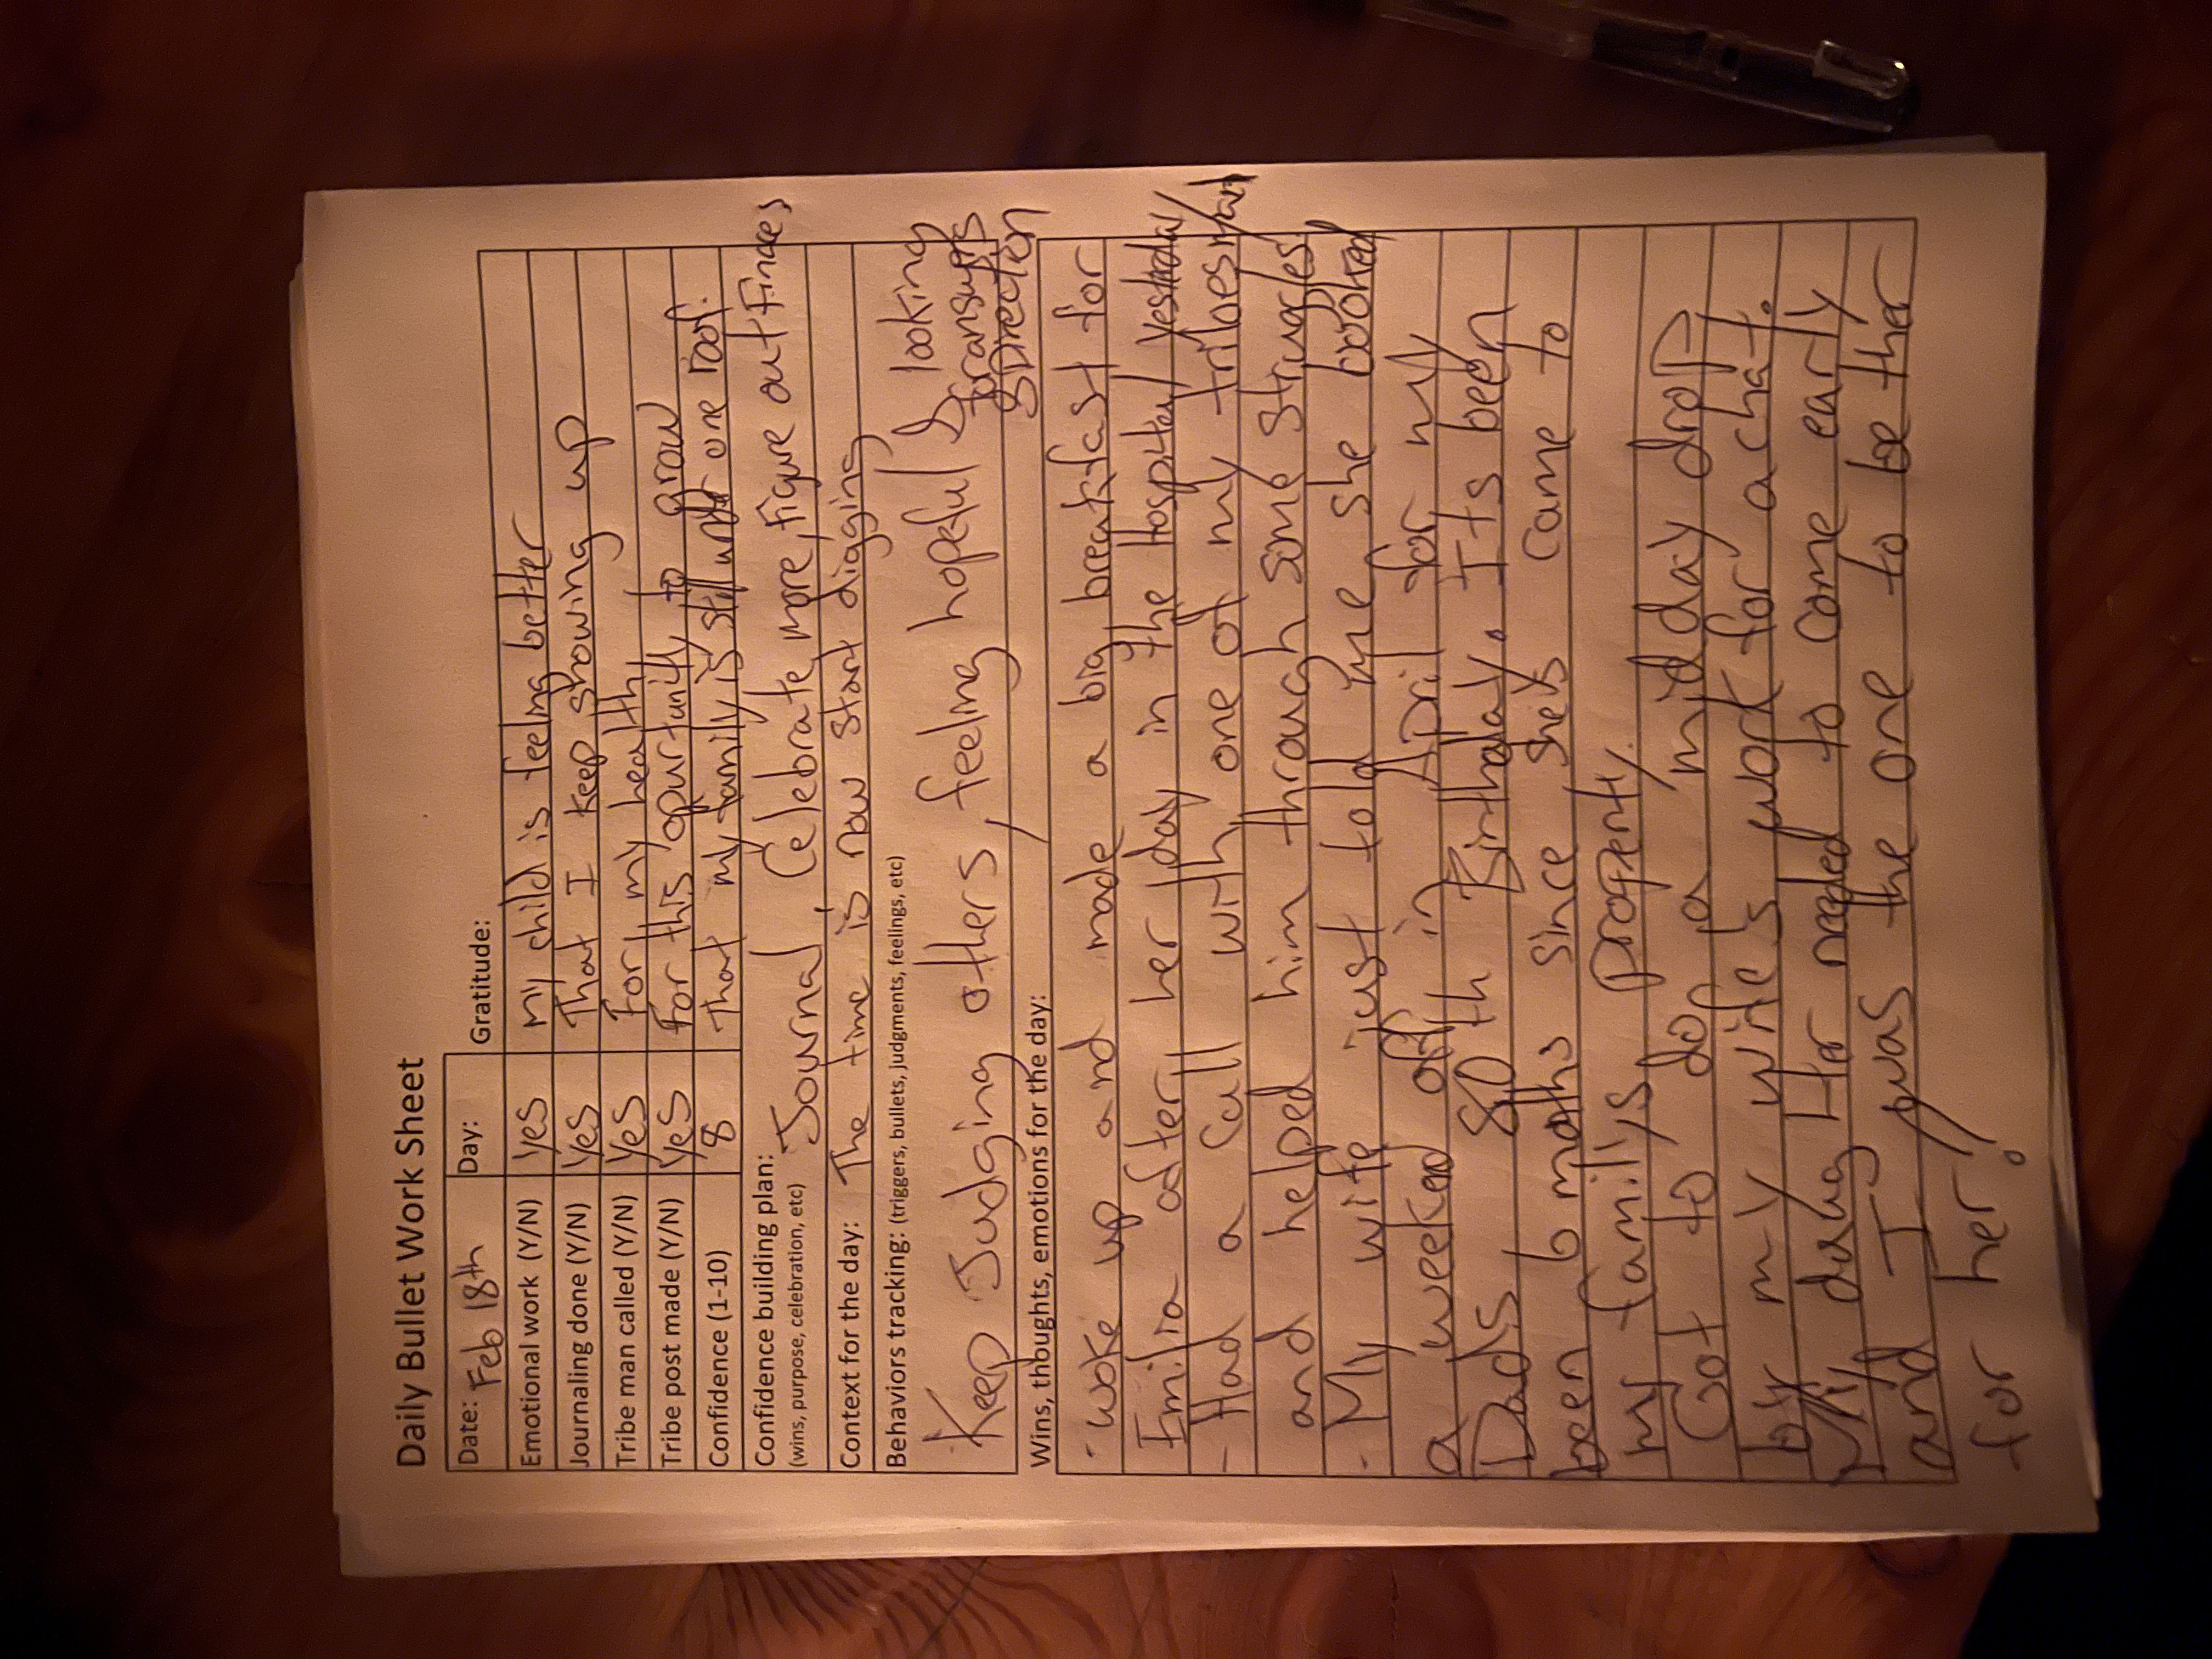 Daily Bullet Work Sheet
Date: Feb 18th Day: Gratitude:
Emotional work (Y/N) yes my child is feeling better
Journaling done (Y/N) yes That I keep showing up
Tribe man called (Y/N) yes For my health
Tribe post made (Y/N) yes for this opurtunity to grow
Confidence (1-10) 8 That my family is still under one roof.
Confidence building plan: Journal, Celebrate more, Figure out Finaces
(wins, purpose, celebration, etc)
Context for the day: The time is now start digging
Behaviors tracking: (triggers, bullets, judgments, feelings, etc)
Keep Judging others, feeling hopeful & looking
for answers
Direction
Wins, thoughts, emotions for the day:
- woke up and made a big breakfast for
Emilia after her day in the Hospital yesterday
- Had a call with one of my tribesman
and helped him through some struggles
- My wife just told me she booked
a weekend off in April for my
Dads 80th Birthday. Its been
been 6 months since she's came to
my family's property.
Got to do a midday drop
by my wife's work for a chat.
My daug Her needed to come early
and I was the one to be ther
for her!